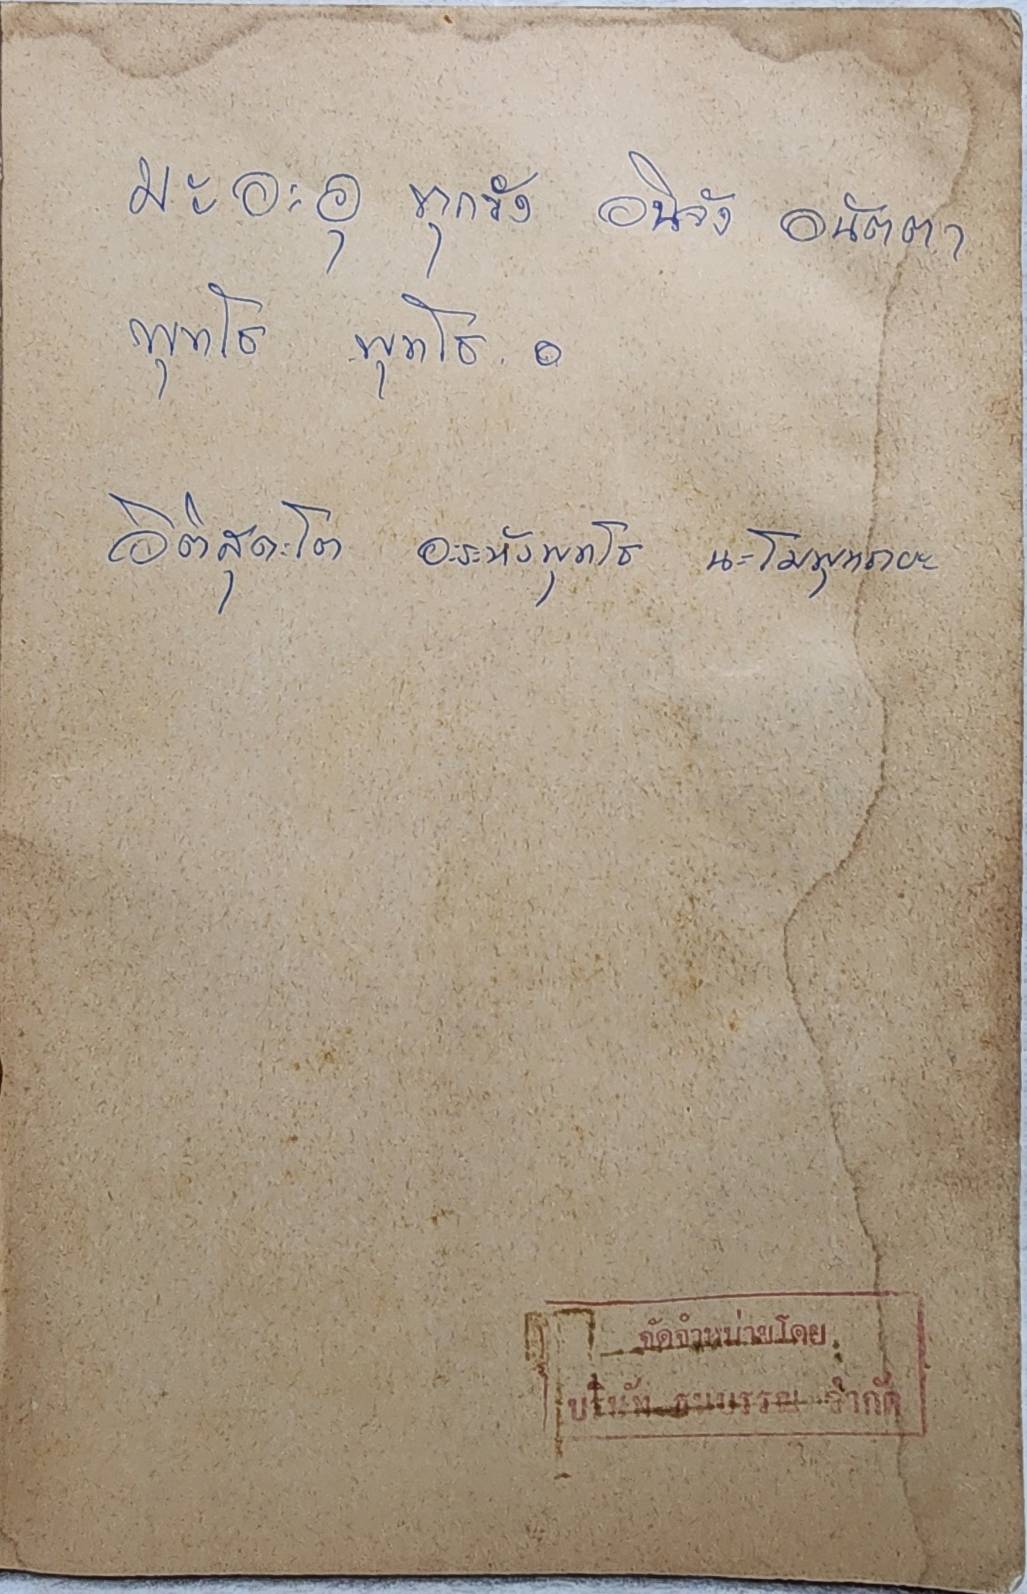 มะ อะ อุ ทุกขัง อนิจัง อนัตตา
พุทโธ พุทโธ ๑
อิติสุคะโต อะระหังพุทโธ นะโมพุทธายะ
จัดจำหน่ายโดย
บริษัท ธนบรรณ จำกัด